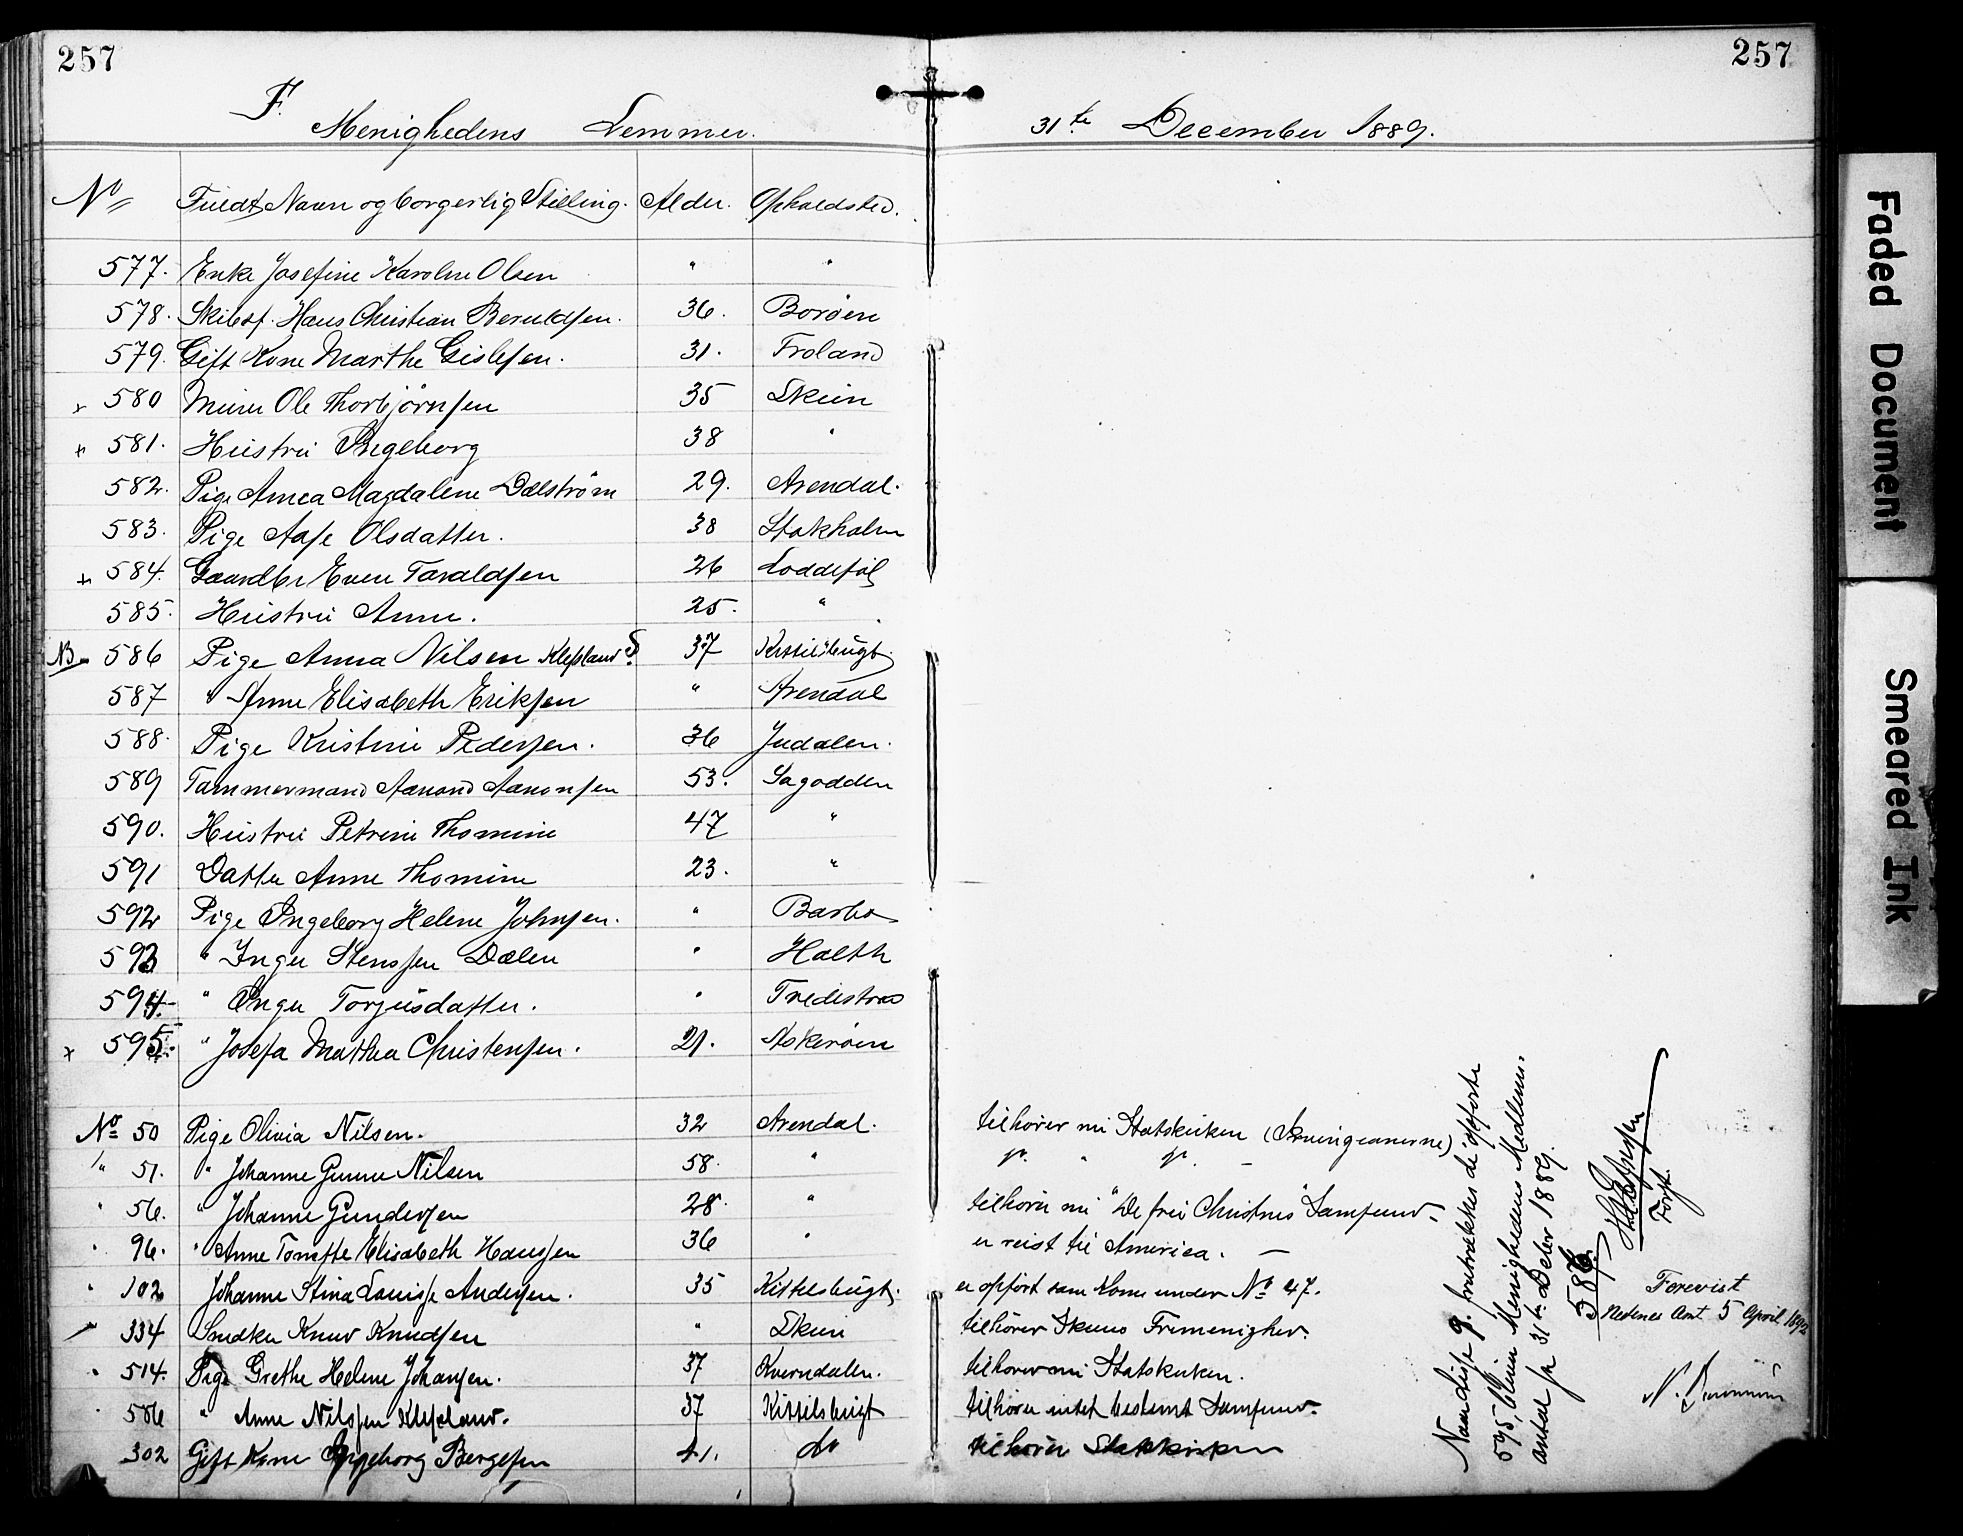 257 257
F.
Menighedens Lemmer. 31te December 1889.
No Fuldt Navn og borgerlig Stilling. Alder. Opholdsted.
577. Enke Josefine Karoline Olsen " "
578. Skibsf. Hans Christian Beruldsen. 36. Borøen
579. Gift Kone Marthe Gislesen. 31. Froland
x 580 Murer Ole Thorbjørnsen 35 Skien
x 581. Hustru Ingeborg 38 "
582. Pige Anna Magdalene Dalstrøm 29. Arendal.
583. Pige Aase Olsdatter. 38 Stokholm
x 584. Gaardbr Even Taraldsen 26 Loddesøl
585. Hustru Anne. 25. "
NB 586 Pige Anna Nilsen Klefsland 37 Kittilsbugt
587 " Anne Elisabeth Eriksen " Arendal
588. Pige Kristine Pedersen. 36 Judalen.
589 Tømmermand Aanond Aanonsen 53. Sagodden
590. Hustru Petrine Thomine 47 "
591 Datter Anne Thomine 23. "
592 Pige Ingeborg Helene Johnsen. " Barbo
593 " Inger Stenssen Dalen " Holth
594. " Inger Torjusdatter. " Tvedestrand
x 595. " Josefa Mathea Christensen. 21. Askerøen
No 50 Pige Olivia Nilsen. 32 Arendal. tilhører nu Statskirken (Irvingeanerne)
" 51. " Johanne Gunne Nilsen 58. "
" 56. " Johanne Gundersen 28. " tilhører nu "De frie Christnes" Samfund.
" 96. " Anne Tomette Elisabeth Hanssen 36 " er reist til America. —
" 102 Johanne Stina Louise Andersen. 35 Kittelsbugt. er opført som Kone under No 47.
334 Snedker Knud Knudsen " Skien tilhører Skiens Frimenighed.
" 514. Pige Grethe Helene Johansen. 37 Kverndalen. tilhører nu Statskirken.
586 " Anne Nilssen Klefsland. 37 Kittilsbugt tilhører intet bestemt Samfund.
302 Gift Kone Ingeborg Bergesen 41. do tilhører Statskirken
Naar disse 9. fratrækkes de opførte
595, bliver Menighedens Medlems
antal pr 31te Decbr 1889.
586.
Forst.
Forevist
Nedenes Amt 5 April 1892
Faded Document
Smeared Ink